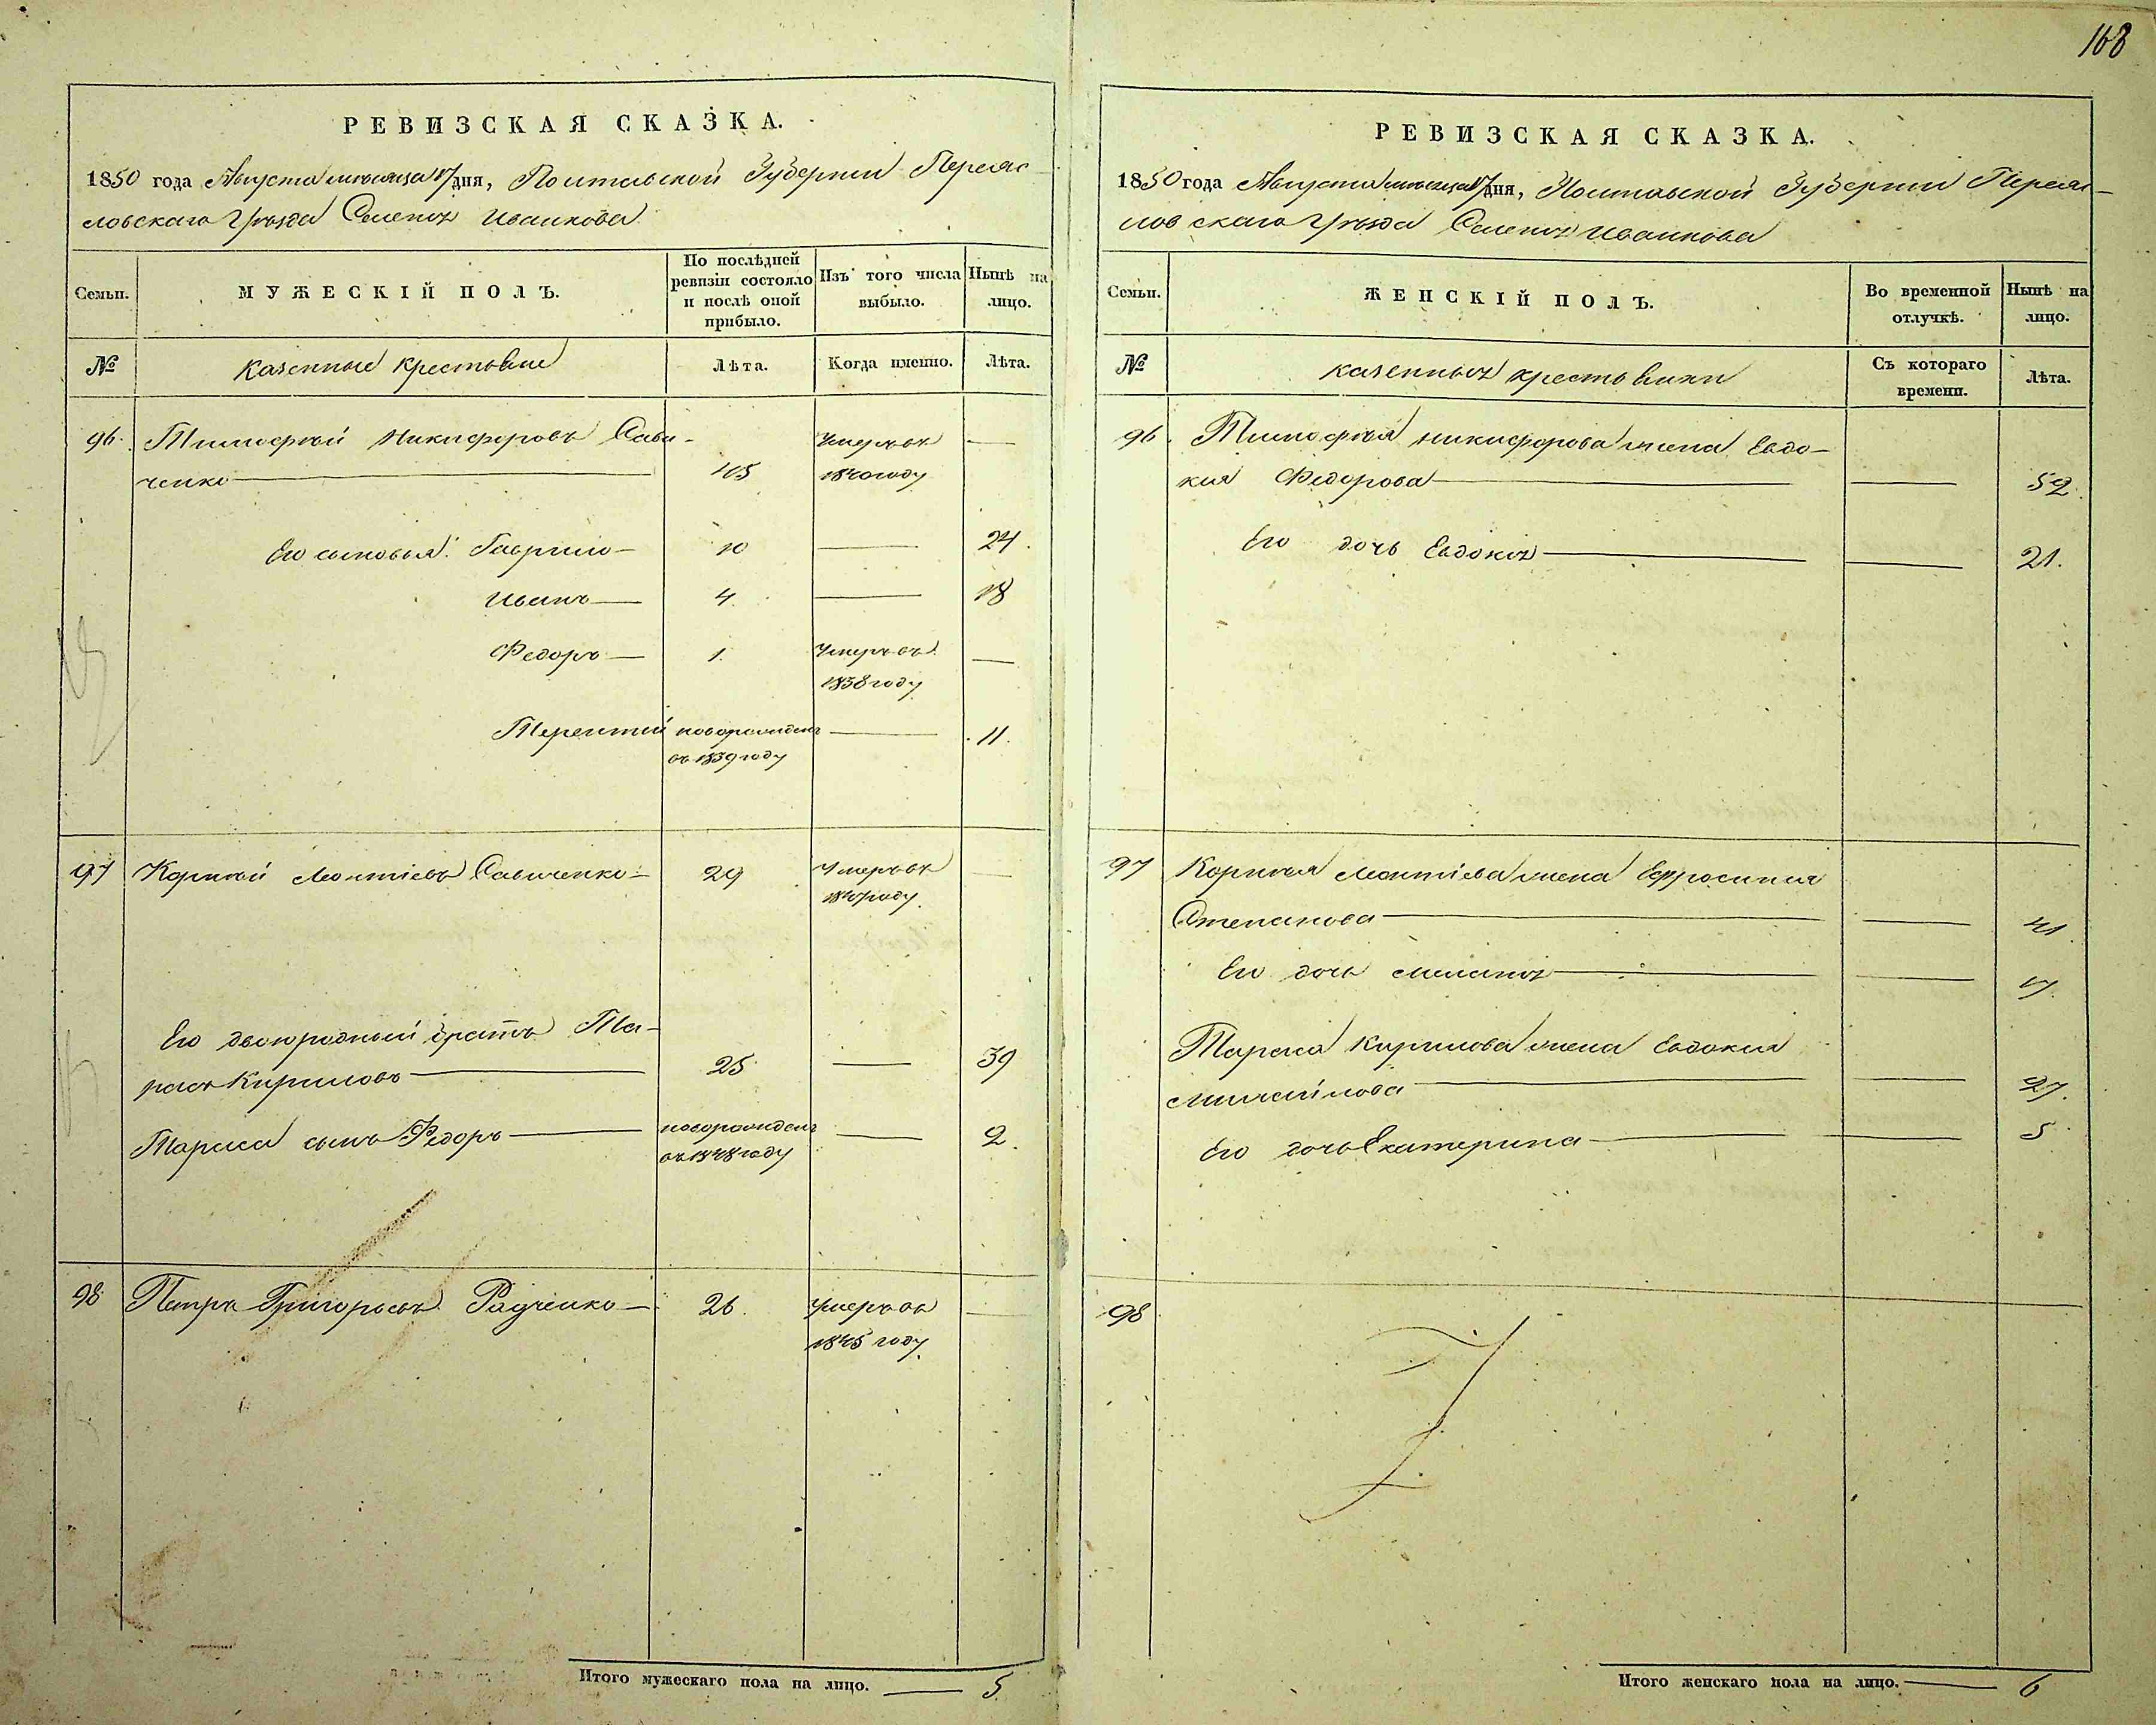 168
РЕВИЗСКАЯ СКАЗКА.
1850 года Августа месяца 17 дня, Полтавской Губернии Переяс-
ловскаго Уѣзда Селенія Иванкова
Семьи.
МУЖЕСКІЙ ПОЛЪ.
По послѣдней ревизіи состояло и послѣ оной прибыло.
Изъ того числа выбыло.
Нынѣ на лицо.
№
казенные крестьяне
Лѣта.
Когда именно.
Лѣта.
96. Тимофѣй Никифоровъ Сав-
ченко 45 Умеръ въ 1840 году
Его сыновья: Гаврило 10 24.
Иванъ 4. 18
Федоръ 1. Умеръ въ 1838 году
Терентій новорожденъ 11.
въ 1839 году
97 Корнѣй Леонтіевъ Савченко 29 Умеръ въ
году
Его двоюродный братъ Та-
расъ Кириловъ 25 39
Тараса сынъ Федоръ новорожденъ 2.
въ 1848 году
98 Петръ Григорьевъ Радченко 26. Умеръ въ
1845 году
Итого мужескаго пола на лицо. 5
РЕВИЗСКАЯ СКАЗКА.
1850 года Августа месяца 17 дня, Полтавской Губернии Переяс-
ловскаго Уѣзда Селенія Иванкова
Семьи.
ЖЕНСКІЙ ПОЛЪ.
Во временной отлучкѣ.
Нынѣ на лицо.
№
казенныя крестьянки
Съ котораго времени.
Лѣта.
96. Тимофѣя Никифорова жена Евдо-
кия Федорова 52.
Его дочь Евдокія 21.
97 Корнѣя Леонтіева жена Ефросиния
Степанова 41
Его дочь Меланія 17.
Тараса Кирилова жена Евдокия
Михайлова 27.
Его дочь Екатерина 5
98
Итого женскаго пола на лицо. 6